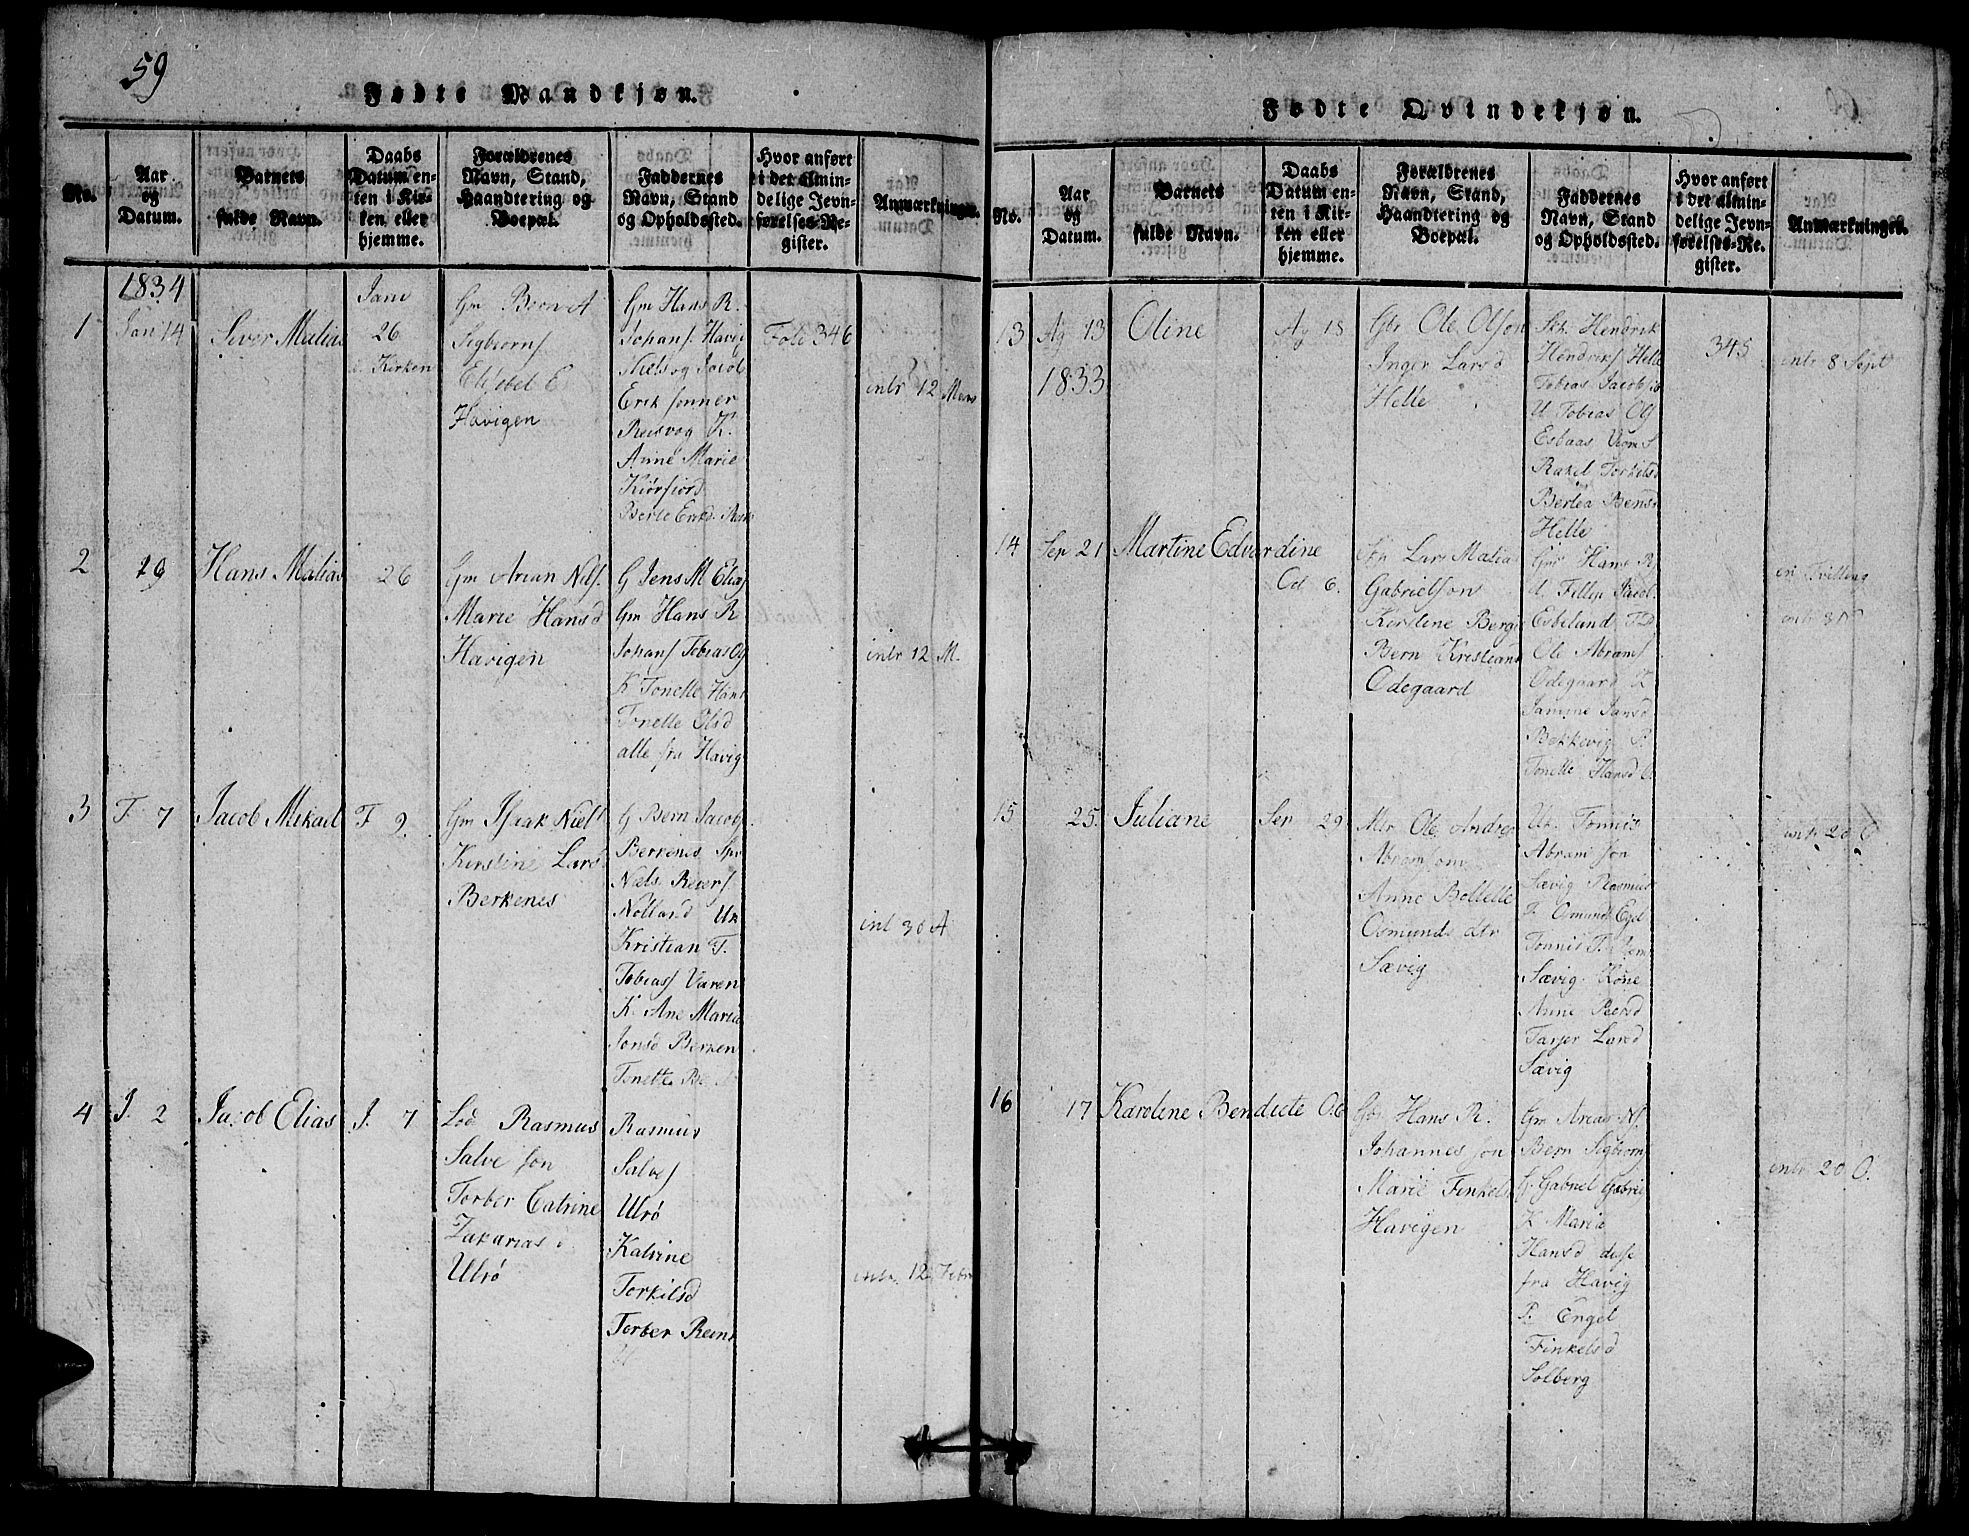 59
Fødte Mandkjøn.
No.
Aar
og
Datum.
Barnets
fulde Navn.
Daabs
Datum en-
ten i Kir-
ken eller
hjemme.
Forældrenes
Navn, Stand,
Haandtering og
Boepæl.
Faddernes
Navn, Stand
og Opholdssted.
Hvor anført
i det almin-
delige Jevn-
førelses-Re-
gister.
Anmærkninger.
1834
1
Jan 14
Siver Matias
Janu
26
i Kirken
Gm Beern A
Sigbiorns
Elisebet E
Havigen
Gm Hans R.
Johans. Havig
Niels og Jacob
Erik sønner
Reisvog K.
Anne Marie
Kiörfiord
Berte Erikd.
Fold 346
intr 12 Mars
2
29
Hans Matias
26
Gm Arian Nils.
Marie Hansd
Havigen
G Jens M Elias
Gm Hans R
Johans Tobias Ols
K Tonette Hans
Tonette Olsd
alle fra Havig
intr 12 M.
3
F. 7
Jacob Mikael
F 9.
Gm Isaak Niels
Kirstine Lars
Berkenes
G Bern Jacobs
Berkenes Spr
Niels Reiers
Nolland Uk
Kristian T.
Tobias Varen
K. Ane Marie
Jonsd Berken
Tonette
4
J. 2
Jacob Elias
J. 7
Lod Rasmus
Salve søn
Torber Catrine
Zakarias d
Ulrö
Rasmus
Salves
Ulrö
Katrine
Torkilsd
Torber Reins
intr. 12 Febr
Fødte Qvindekjøn.
No.
Aar
og
Datum.
Barnets
fulde Navn.
Daabs
Datum en-
ten i Kir-
ken eller
hjemme.
Forældrenes
Navn, Stand,
Haandtering og
Boepæl.
Faddernes
Navn, Stand
og Opholdssted.
Hvor anført
i det almin-
delige Jevn-
førelses-Re-
gister.
Anmærkninger.
13
Ag 13
1833
Oline
Ag 18
Gbr Ole Olson
Inger Larsd
Helle
Skh Hendrik
Hendriks Helle
Tobias Jacob ib
U Tobias Ols
Esbaas
Rakel Torkilsd
Bertea Bens
Helle
345
intr 8 Sept
14
Sep 21
Martine Edvardine
Oct 6.
Lars Matia
Gabrielson
Kirstine Berg
Bern Kristians
Odegaard
Gm Hans R
U. Fillip Jacob.
Esbeland
Ole Abrams
Odegaard K
Jansd
Bekkevig P.
Tonette Hansd O.
en Tvilling
intr
15
25.
Juliane
Sep 29
Ole Andreas
Abram søn
Anne Bollette
Osmunds dtr
Sævig
Uk. Tonnis
Abram søn
Sævig Rasmus
Osmunds Egel
Tonnis T.
Sævig. Kone
Anne Peersd
Tarjer Larsd
Sævig
intr 20 O
16
17
Karoline Bendicte
O. 6
Gbr Hans R.
Johannes søn
Marie Finkels
Havigen
Gm Arias Ns.
Bern Sigbiorns
G. Gabriel Gabriel
K Maria
Hansd disse
fra Havig
P. Engel
Finkelsd
Solberg
intr 20 O.